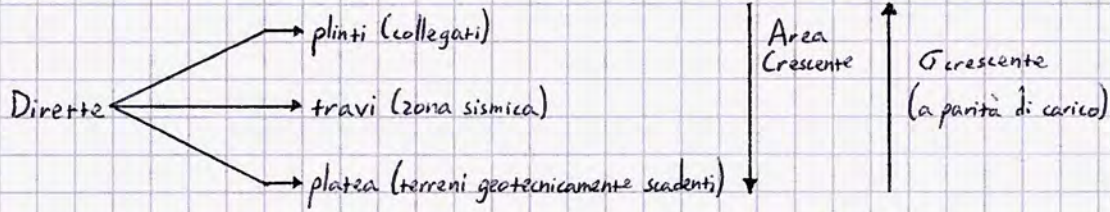 plinti (collegati)
Dirette
travi (zona sismica)
platea (terreni geotecnicamente scadenti)
Area
Crescente
σ crescente
(a parità di carico)